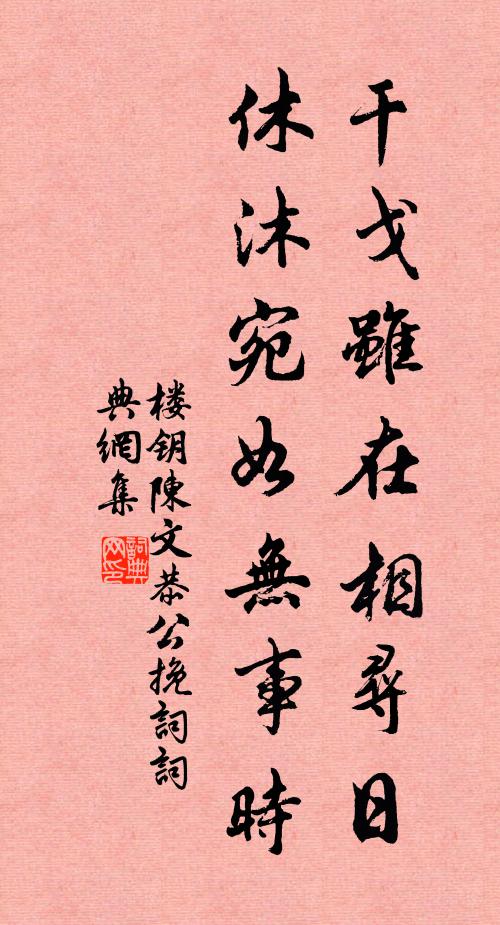 干戈雖在相尋日
休沐宛如無事時
楼钥陳文恭公挽詞詞
典網集
詞典
网印